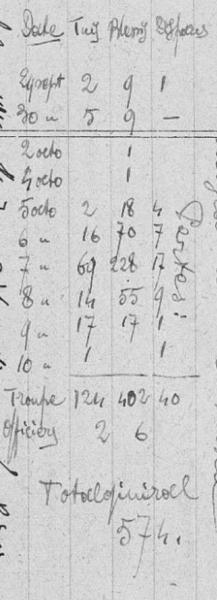 Date Tués Blessés Disparus
29 sept 2 9 1
30 " 5 9 —
2 octo 1
4 octo 1
5 octo 2 18 4
6 " 16 70 7
7 " 69 228 17
8 " 14 55 9
9 " 17 17 1
10 " 1 1
Troupe 124 402 40
Officiers 2 6
Total général
574.
Pertes: